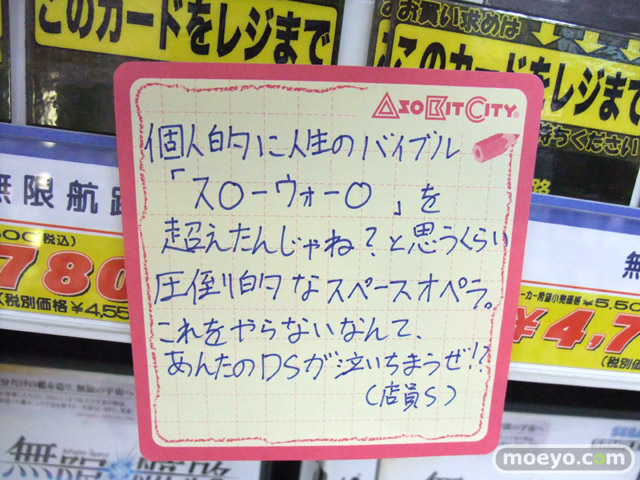 このカードをレジまで
お買い求めは
このカードをレジまで
ASOBITCITY
個人的に人生のバイブル
「スOーウォーO 」を
超えたんじゃね?と思うくらい
圧倒的なスペースオペラ。
これをやらないなんて、
あんたのDSが泣いちまうぜ!?
(店員S)
無限航路
(税込)
780
(税別価格¥4,55
無
メーカー希望小売価格¥5,50
¥4,7
(税別
無限航路
moeyo.com